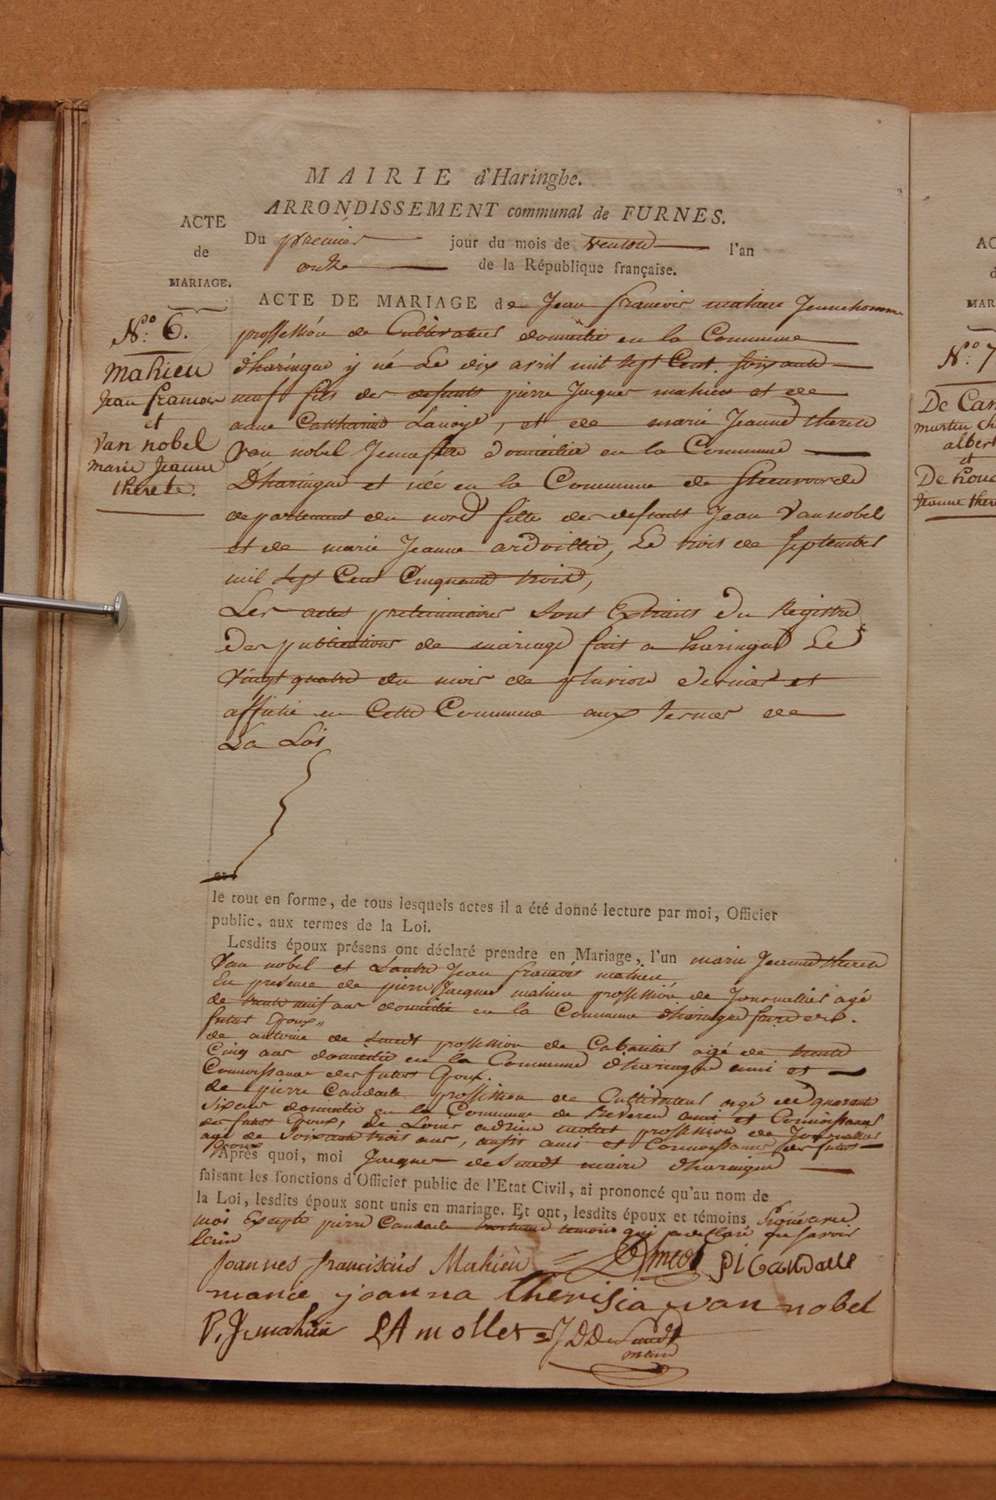 MAIRIE d'Haringhe.
ARRONDISSEMENT communal de FURNES.
ACTE
de
MARIAGE.
Du premier jour du mois de ventose l'an
onze de la République française.
N.º 6.
Mahieu
Jean francois
et
Van nobel
marie Jeanne
therese.
ACTE DE MARIAGE de Jean francois mahieu Jeune homme
professión de Cultivateur domicilie en la Commune
d'haringue y né Le dix avril mil sept Cent soixante
neuf fils des defunts pierre Jacques mahieu et de
anne Catharine Lanoye, et de marie Jeanne therese
Van nobel Jeune fille domiciliée en la Commune
D'haringue et née en la Commune de Steenvoorde
departement du nord fille des defunts Jean Van nobel
et de marie Jeanne ardvillie, Le trois de septembre
mil sept Cent Cinquante trois,
Les actes preliminaires sont Extraits du Registre
Des publications de mariage fait a haringue Le
Vingt quatre du mois de pluviose dernier et
affiché en Cette Commune aux termes de
La Loi
le tout en forme, de tous lesquels actes il a été donné lecture par moi, Officier
public, aux termes de la Loi.
Lesdits époux présens ont déclaré prendre en Mariage, l'un marie Jeanne therese
Van nobel et Lautre Jean francois mahieu
En presence de pierre Jacques mahieu professión de Journallier agé
de trente neuf ans domicilie en la Commune d'haringue frere des
futur Epoux,,
de antoine de smedt profession de Cabaretier agé de trente
Cinq ans domicilie en la Commune d'haringue ami et
Connoissance des futurs Epoux.
de pierre Candaele profession de Cultivateur agé de quarante
Six ans domicilie en la Commune de Beveren ami et Connoissance
des futurs Epoux, de Louis adrien molet profession de Journallier
agé de soixante trois ans, aussi ami et Connoissance des futurs
Epoux
Après quoi, moi Jacques de smedt maire d'haringue
faisant les fonctions d'Officier public de l'Etat Civil, ai prononcé qu'au nom de
la Loi, lesdits époux sont unis en mariage. Et ont, lesdits époux et témoins signé avec
moi Excepte pierre Candaele troisieme temoin qui a declaré ne savoir
Ecrire
joannes franciscus Mahieu ADsmedt pi Candaele
marie joanna therisia van nobel
P, J, mahieu LA mollet J D De Smedt
maire
N.º 7
De Can
martin ch
albert
et
De hou
Jeanne there